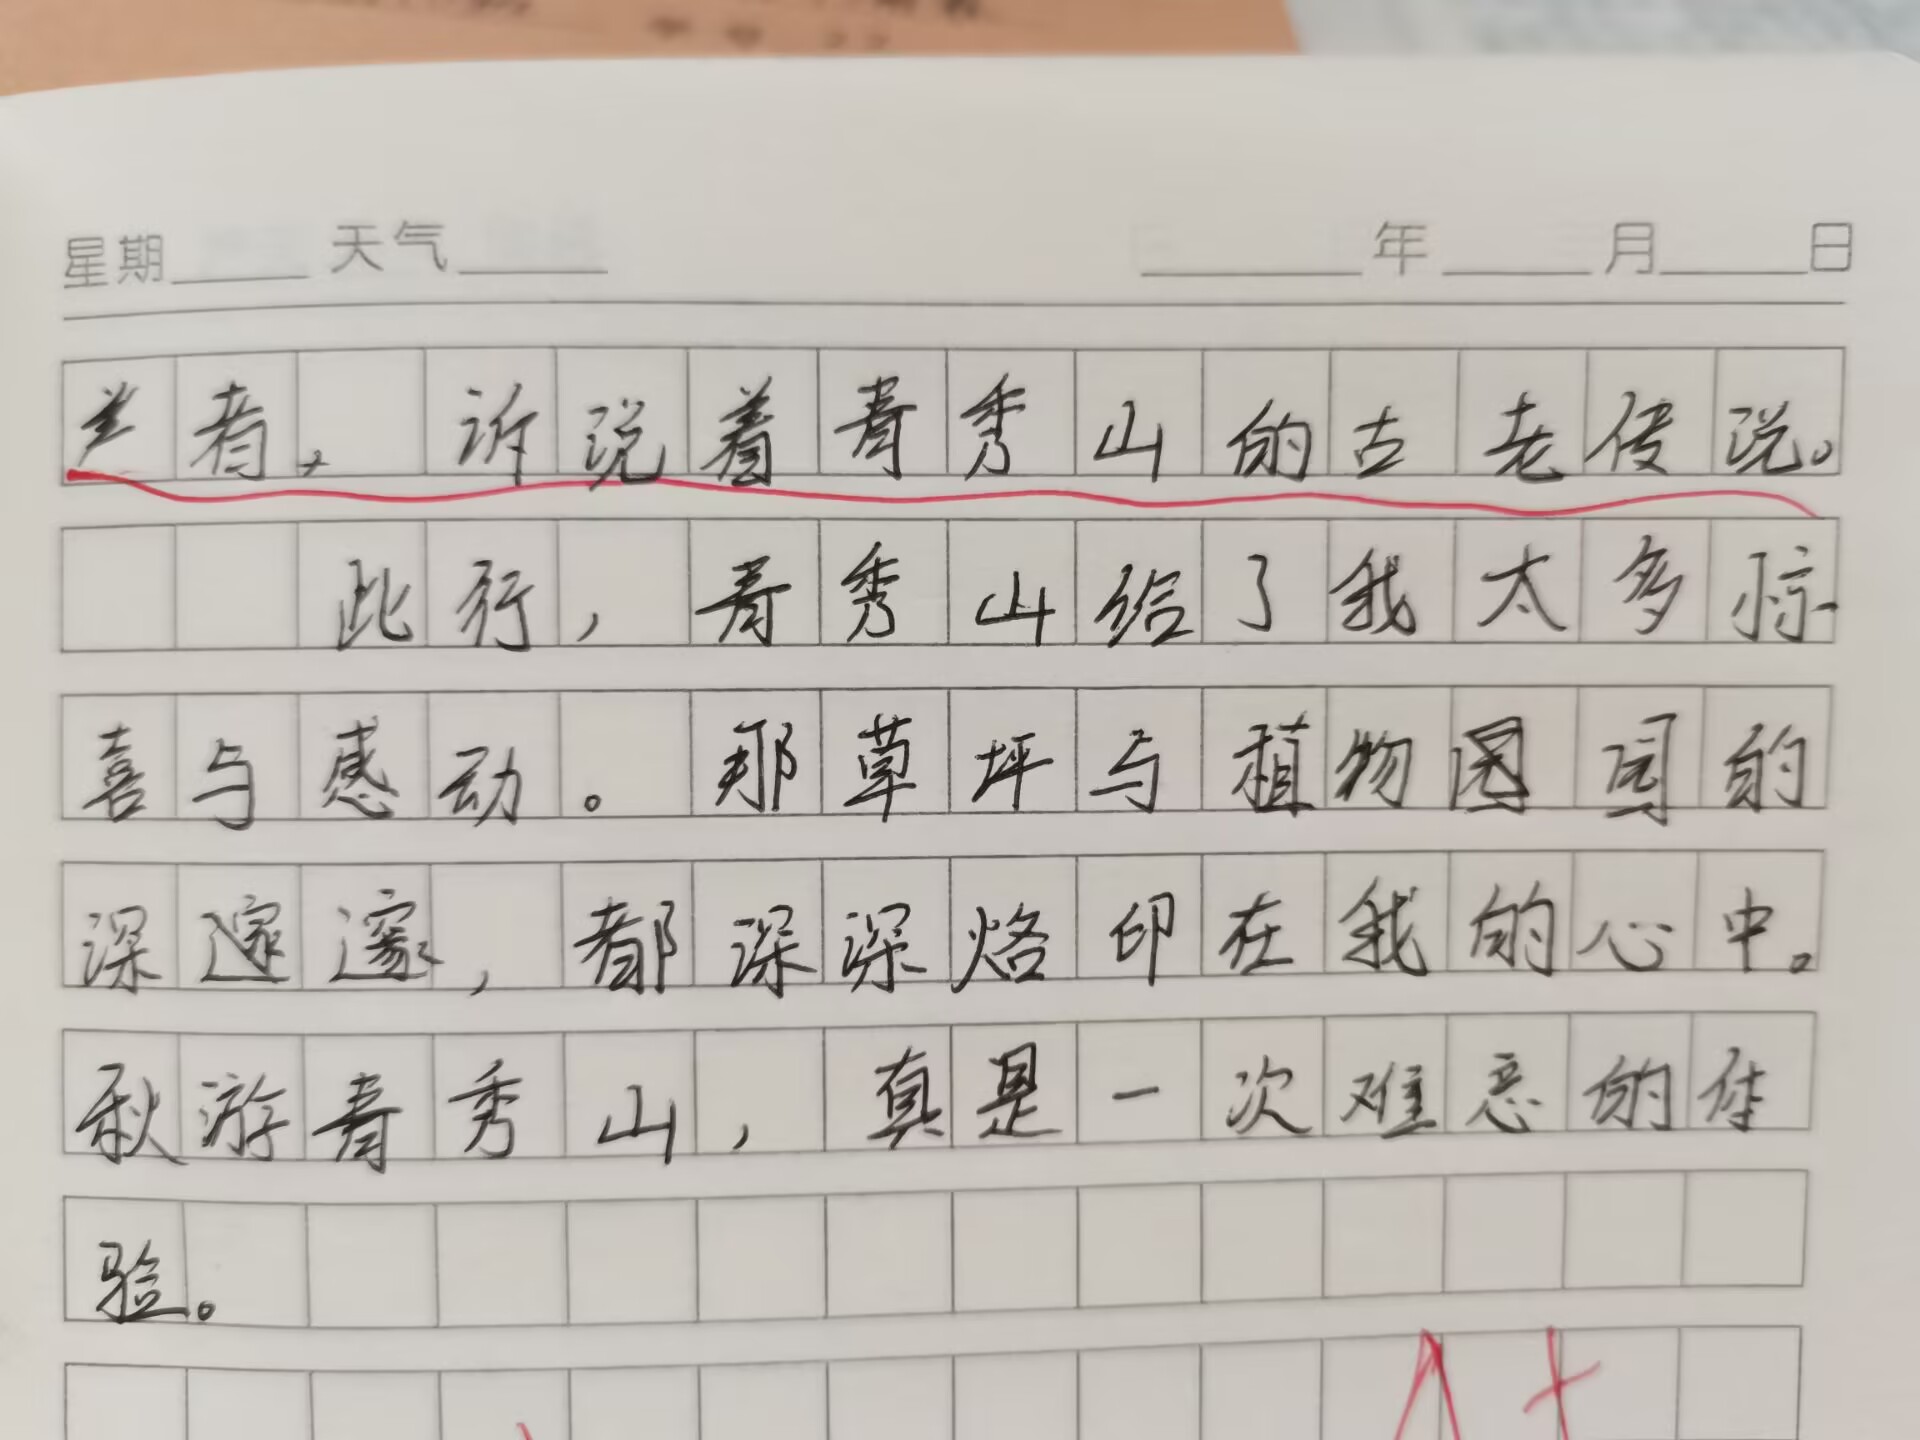 星期 天气 年 月 日
者，诉说着青秀山的古老传说。
此行，青秀山给了我太多惊
喜与感动。那草坪与植物园园的
深邃邃，都深深烙印在我的心中。
秋游青秀山，真是一次难忘的体
验。
A+